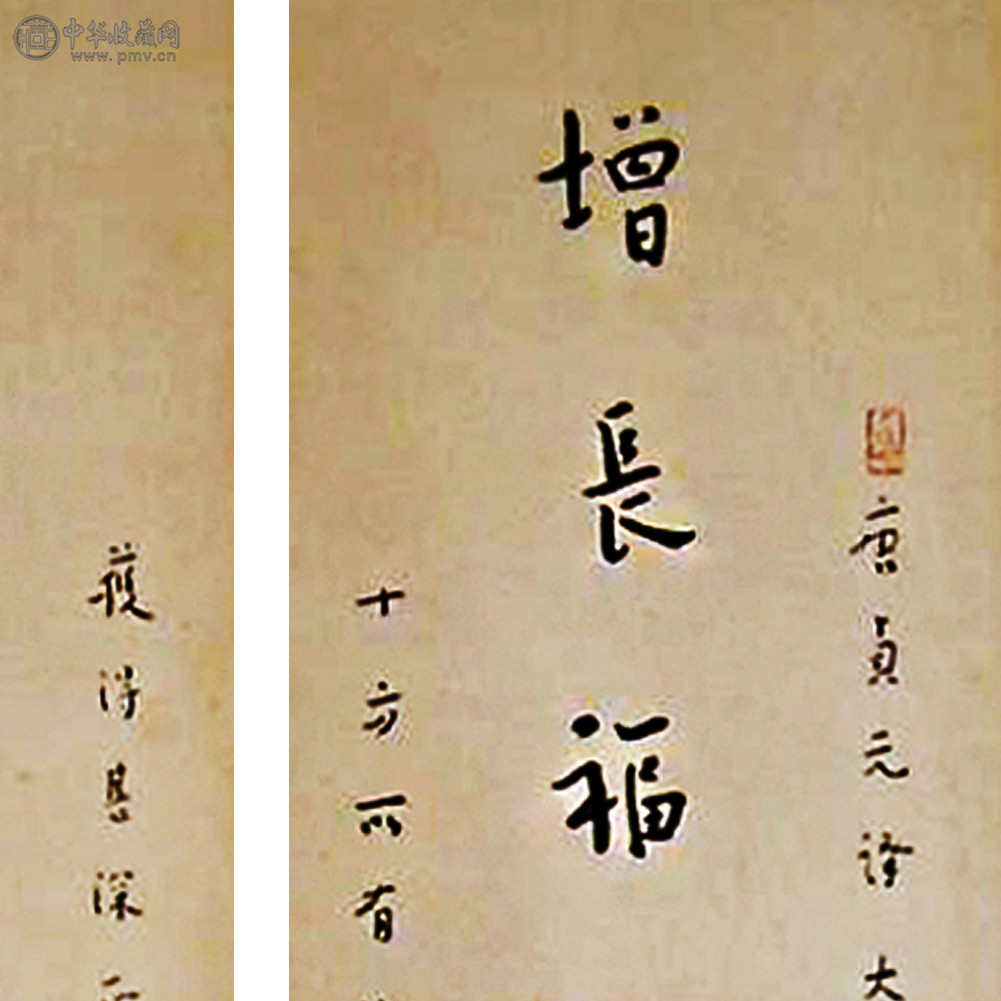 中华收藏网
www.pmv.cn
唐貞元譯大
增長福
十方所有
獲得甚深